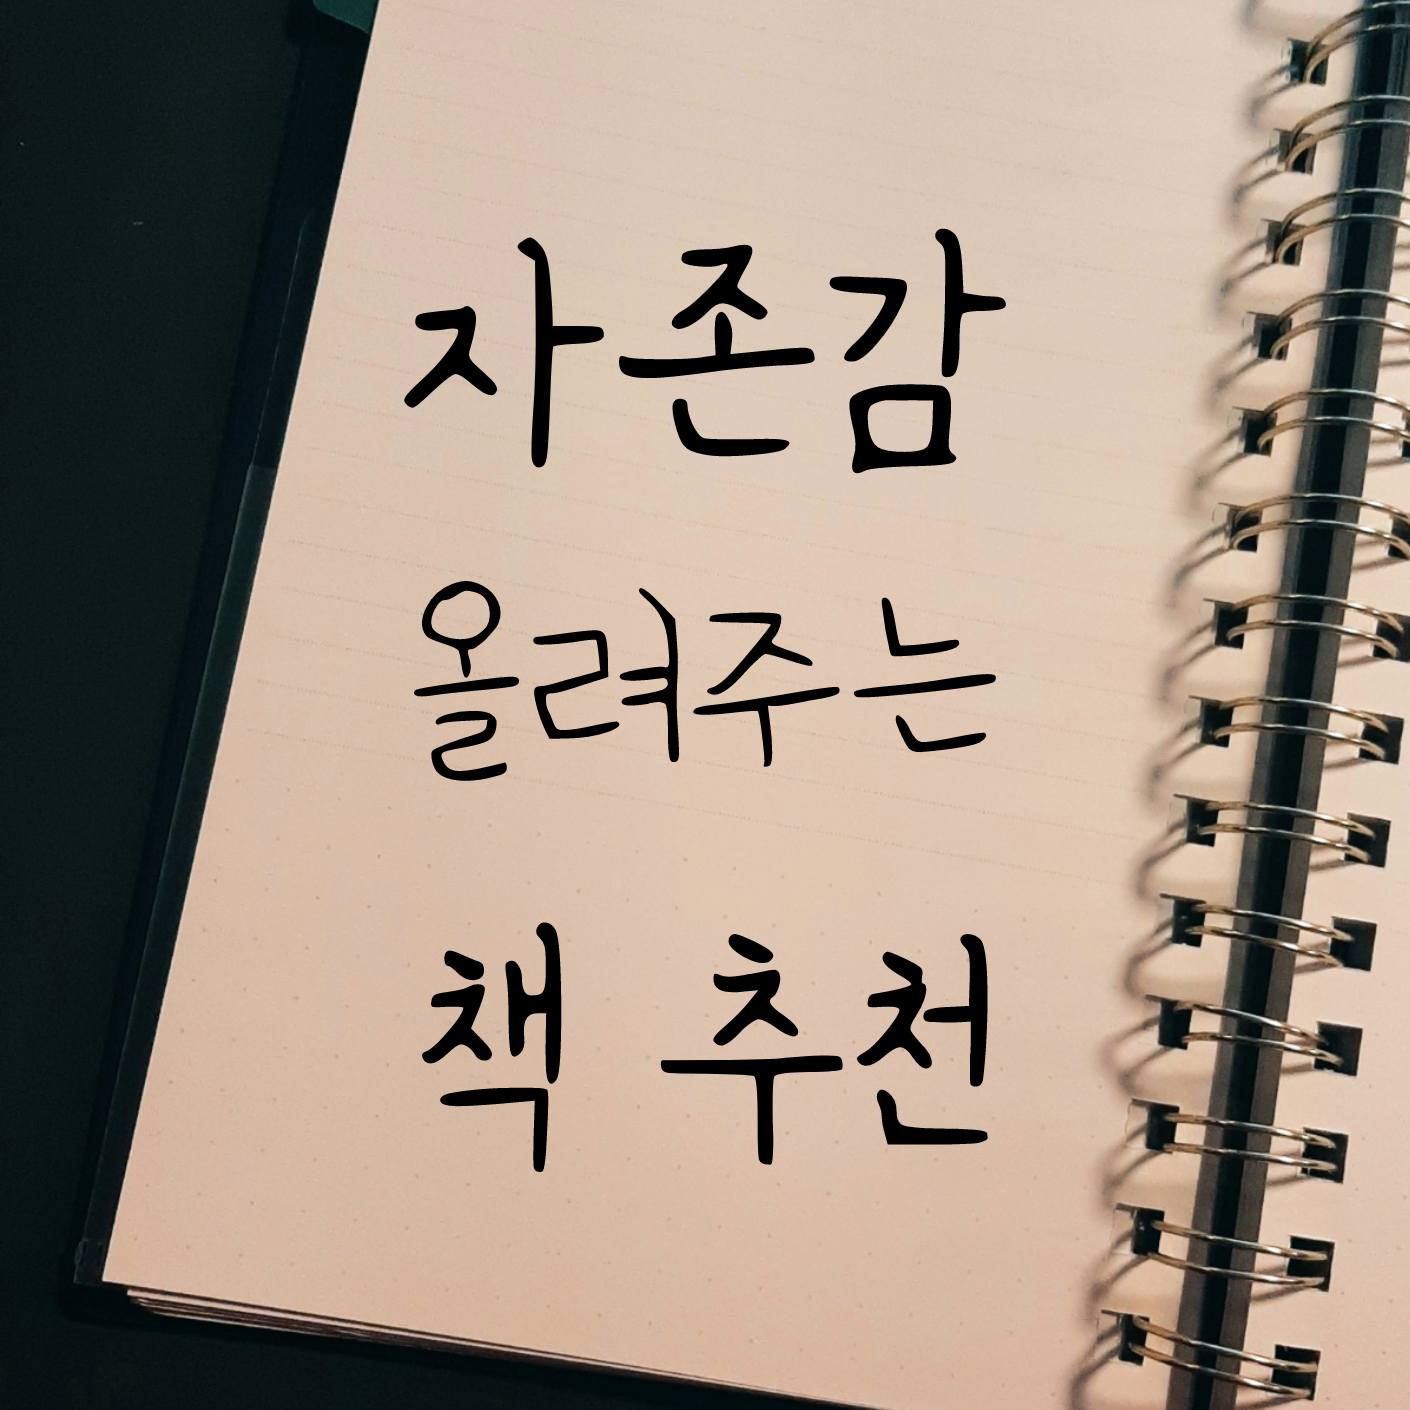 자존감
올려주는
책 추천